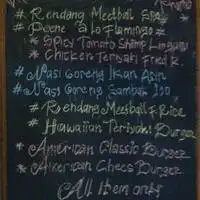 # Rendang Meetball
# Penne a la Flamingo #
* Spicy Tomato Shrimp Linguini
* Chicken Teriyaki Fried R
# Nasi Goreng Ikan Asin
# Nasi Goreng Sambal Ijo
# Roendang Meatball & Rice
# Hawaiian Teriyaki Burger
* American Classic Burger
* American Chees Burger
All item only